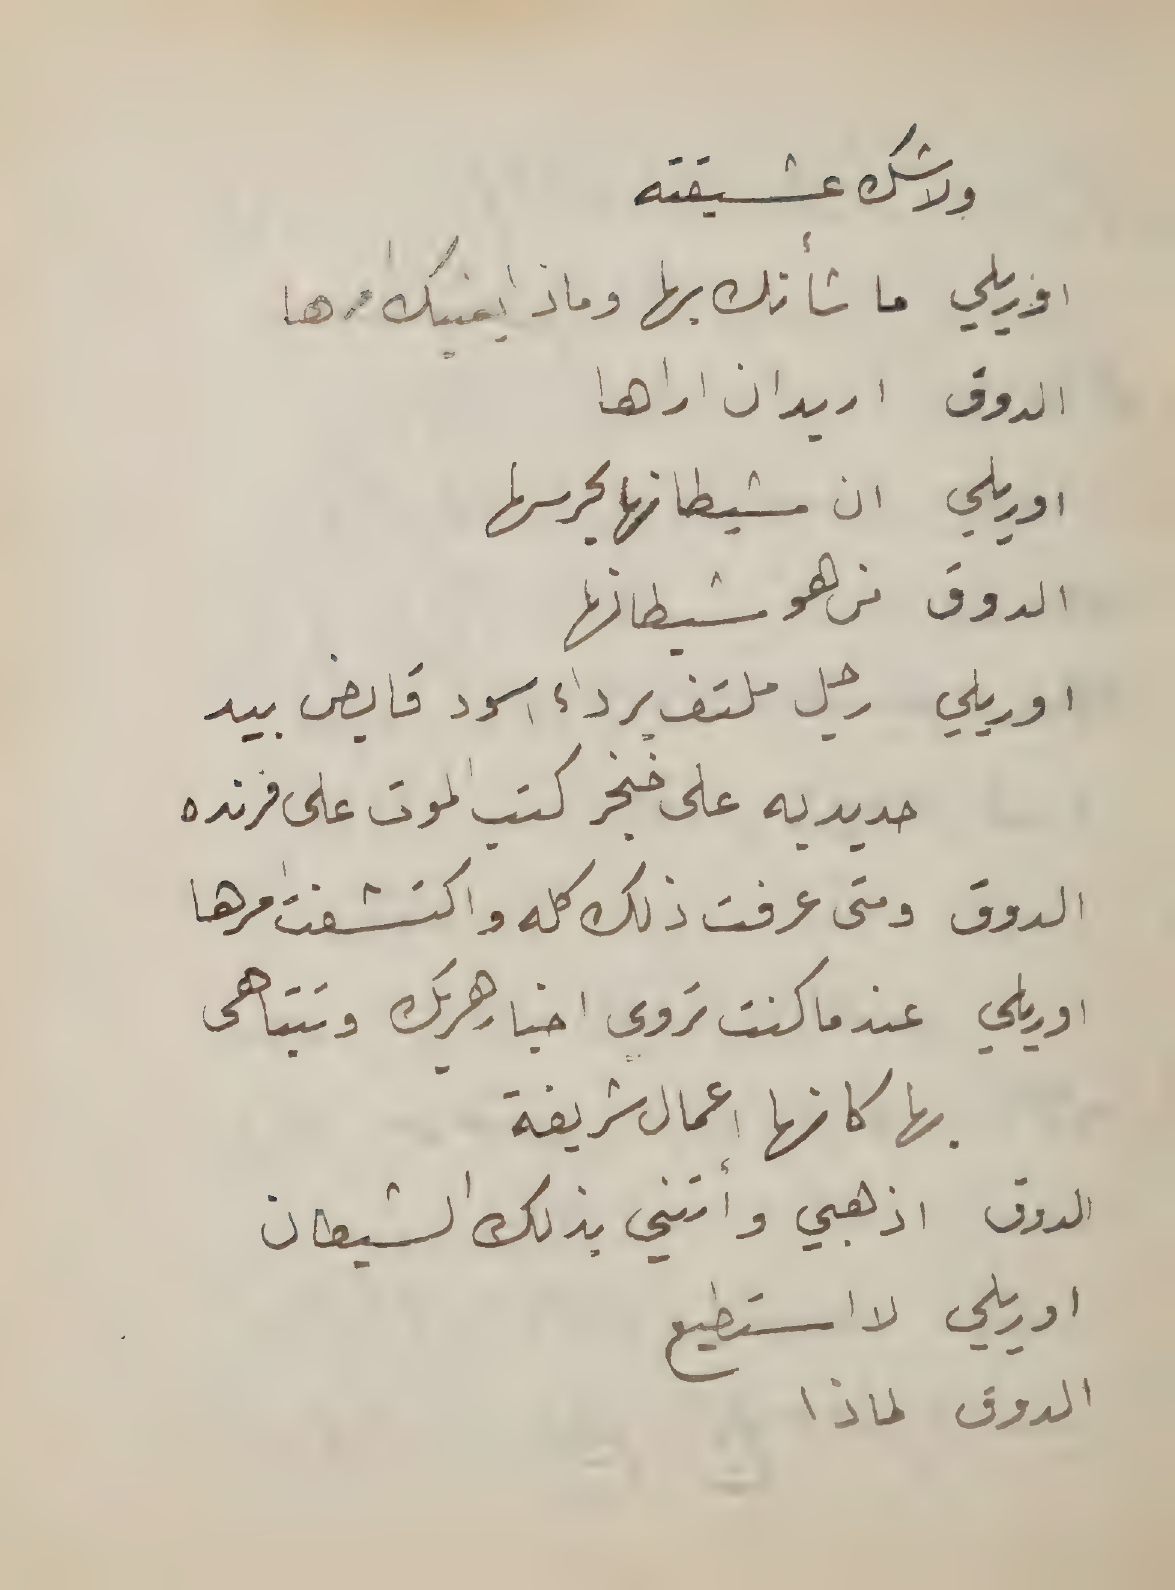 ولاشك عشيقته
اوريلي ما شأنك بها وماذا يعنيك امرها
الدوق اريد ان اراها
اوريلي ان شيطانها يحرسها
الدوق من هو شيطانها
اوريلي رجل ملتف برداء اسود قابض بيد
حديديه على خنجر كتب الموت على فرنده
الدوق ومتى عرفت ذلك كله واكتشفت امرها
اوريلي عندما كنت تروي اخبار هربك وتتباهى
بها كانها اعمال شريفة
الدوق اذهبي وأتني بذلك الشيطان
اوريلي لا استطيع
الدوق لماذا